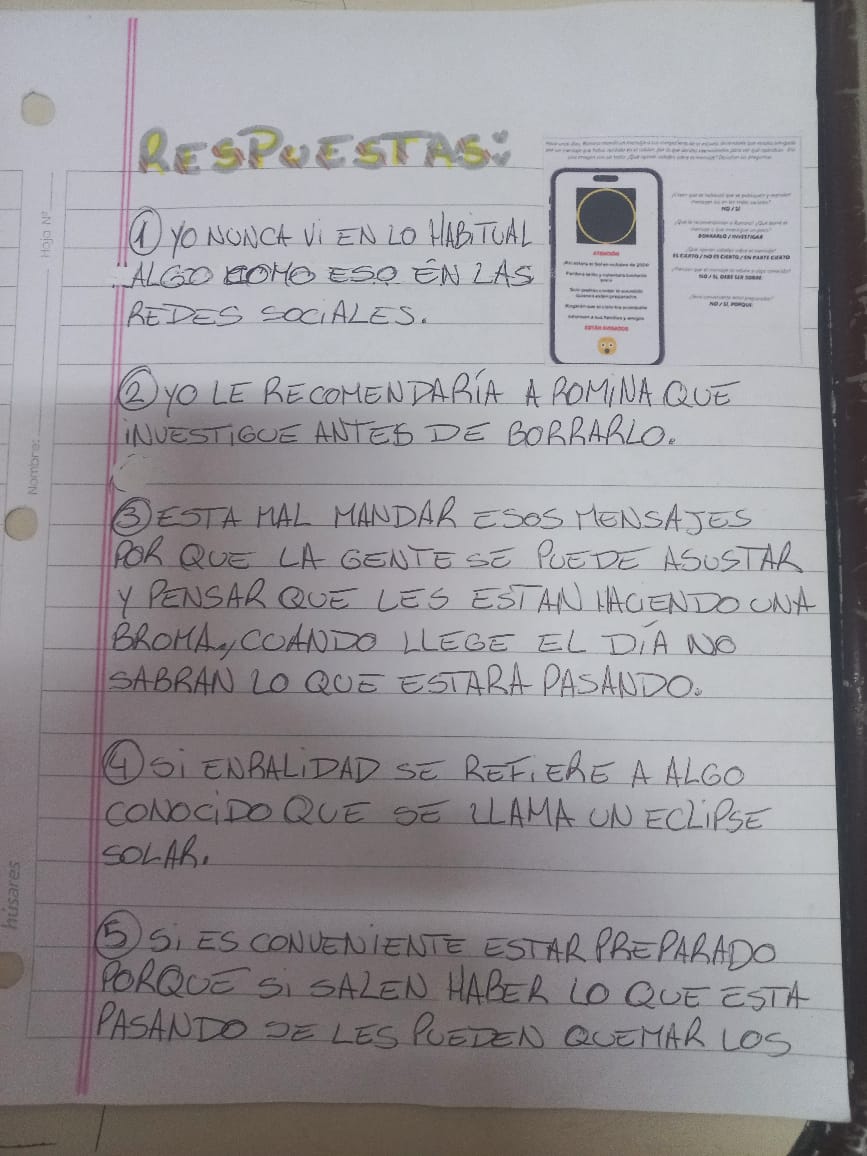 RESPUESTAS:
① YO NUNCA Vi EN LO HABiTUAL
ALGO COMO ESO EN LAS
REDES SOCIALES.
② YO LE RECOMENDARÍA A ROMINA QUE
iNVESTIGUE ANTES DE BORRARLO.
③ ESTA MAL MANDAR ESOS MENSAJES
POR QUE LA GENTE SE PUEDE ASUSTAR
Y PENSAR QUE LES ESTAN HACIENDO UNA
BROMA., CUANDO LLEGE EL DÍA NO
SABRAN LO QUE ESTARA PASANDO.
④ Si ENRALIDAD SE REFiERE A ALGO
CONOCiDO QUE SE LLAMA UN ECLiPSE
SOLAR.
⑤ Si ES CONVENiENTE ESTAR PREPARADO
PORQUE Si SALEN HABER LO QUE ESTA
PASANDO SE LES PUEDEN QUEMAR LOS
ATENCIÓN
ESTÁN AVISADOS
NO / SÍ
BORRARLO / INVESTIGAR
ES CIERTO / NO ES CIERTO / EN PARTE CIERTO
NO / SÍ, DEBE SER SOBRE:
NO / SÍ, PORQUE:
Hoja Nº
Nombre:
húsares